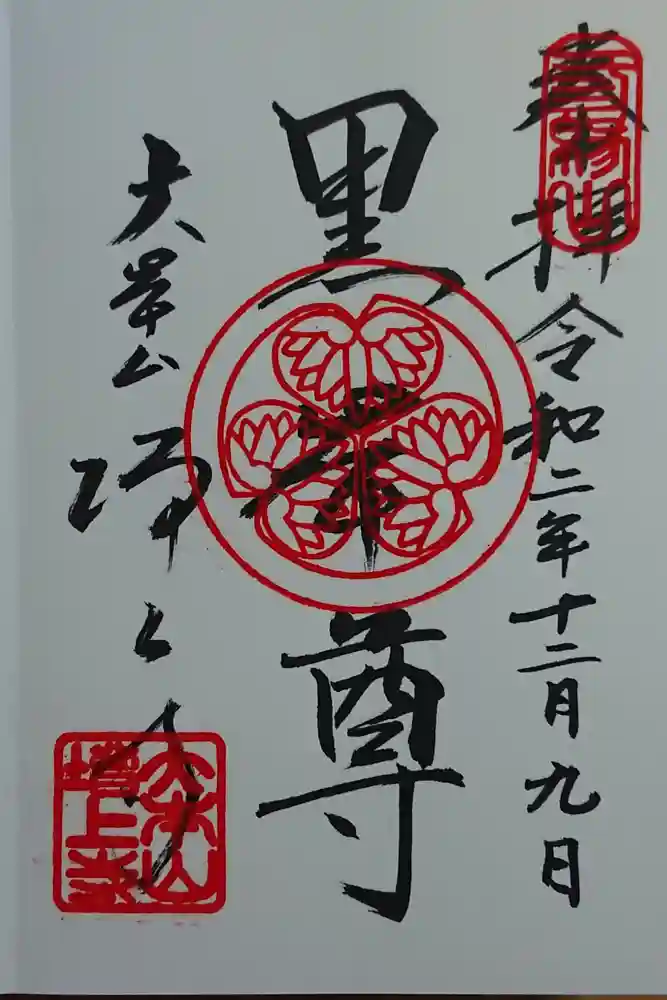 奉拝
令和二年十二月九日
黒本尊
大本山
増上寺
大本山
増上寺